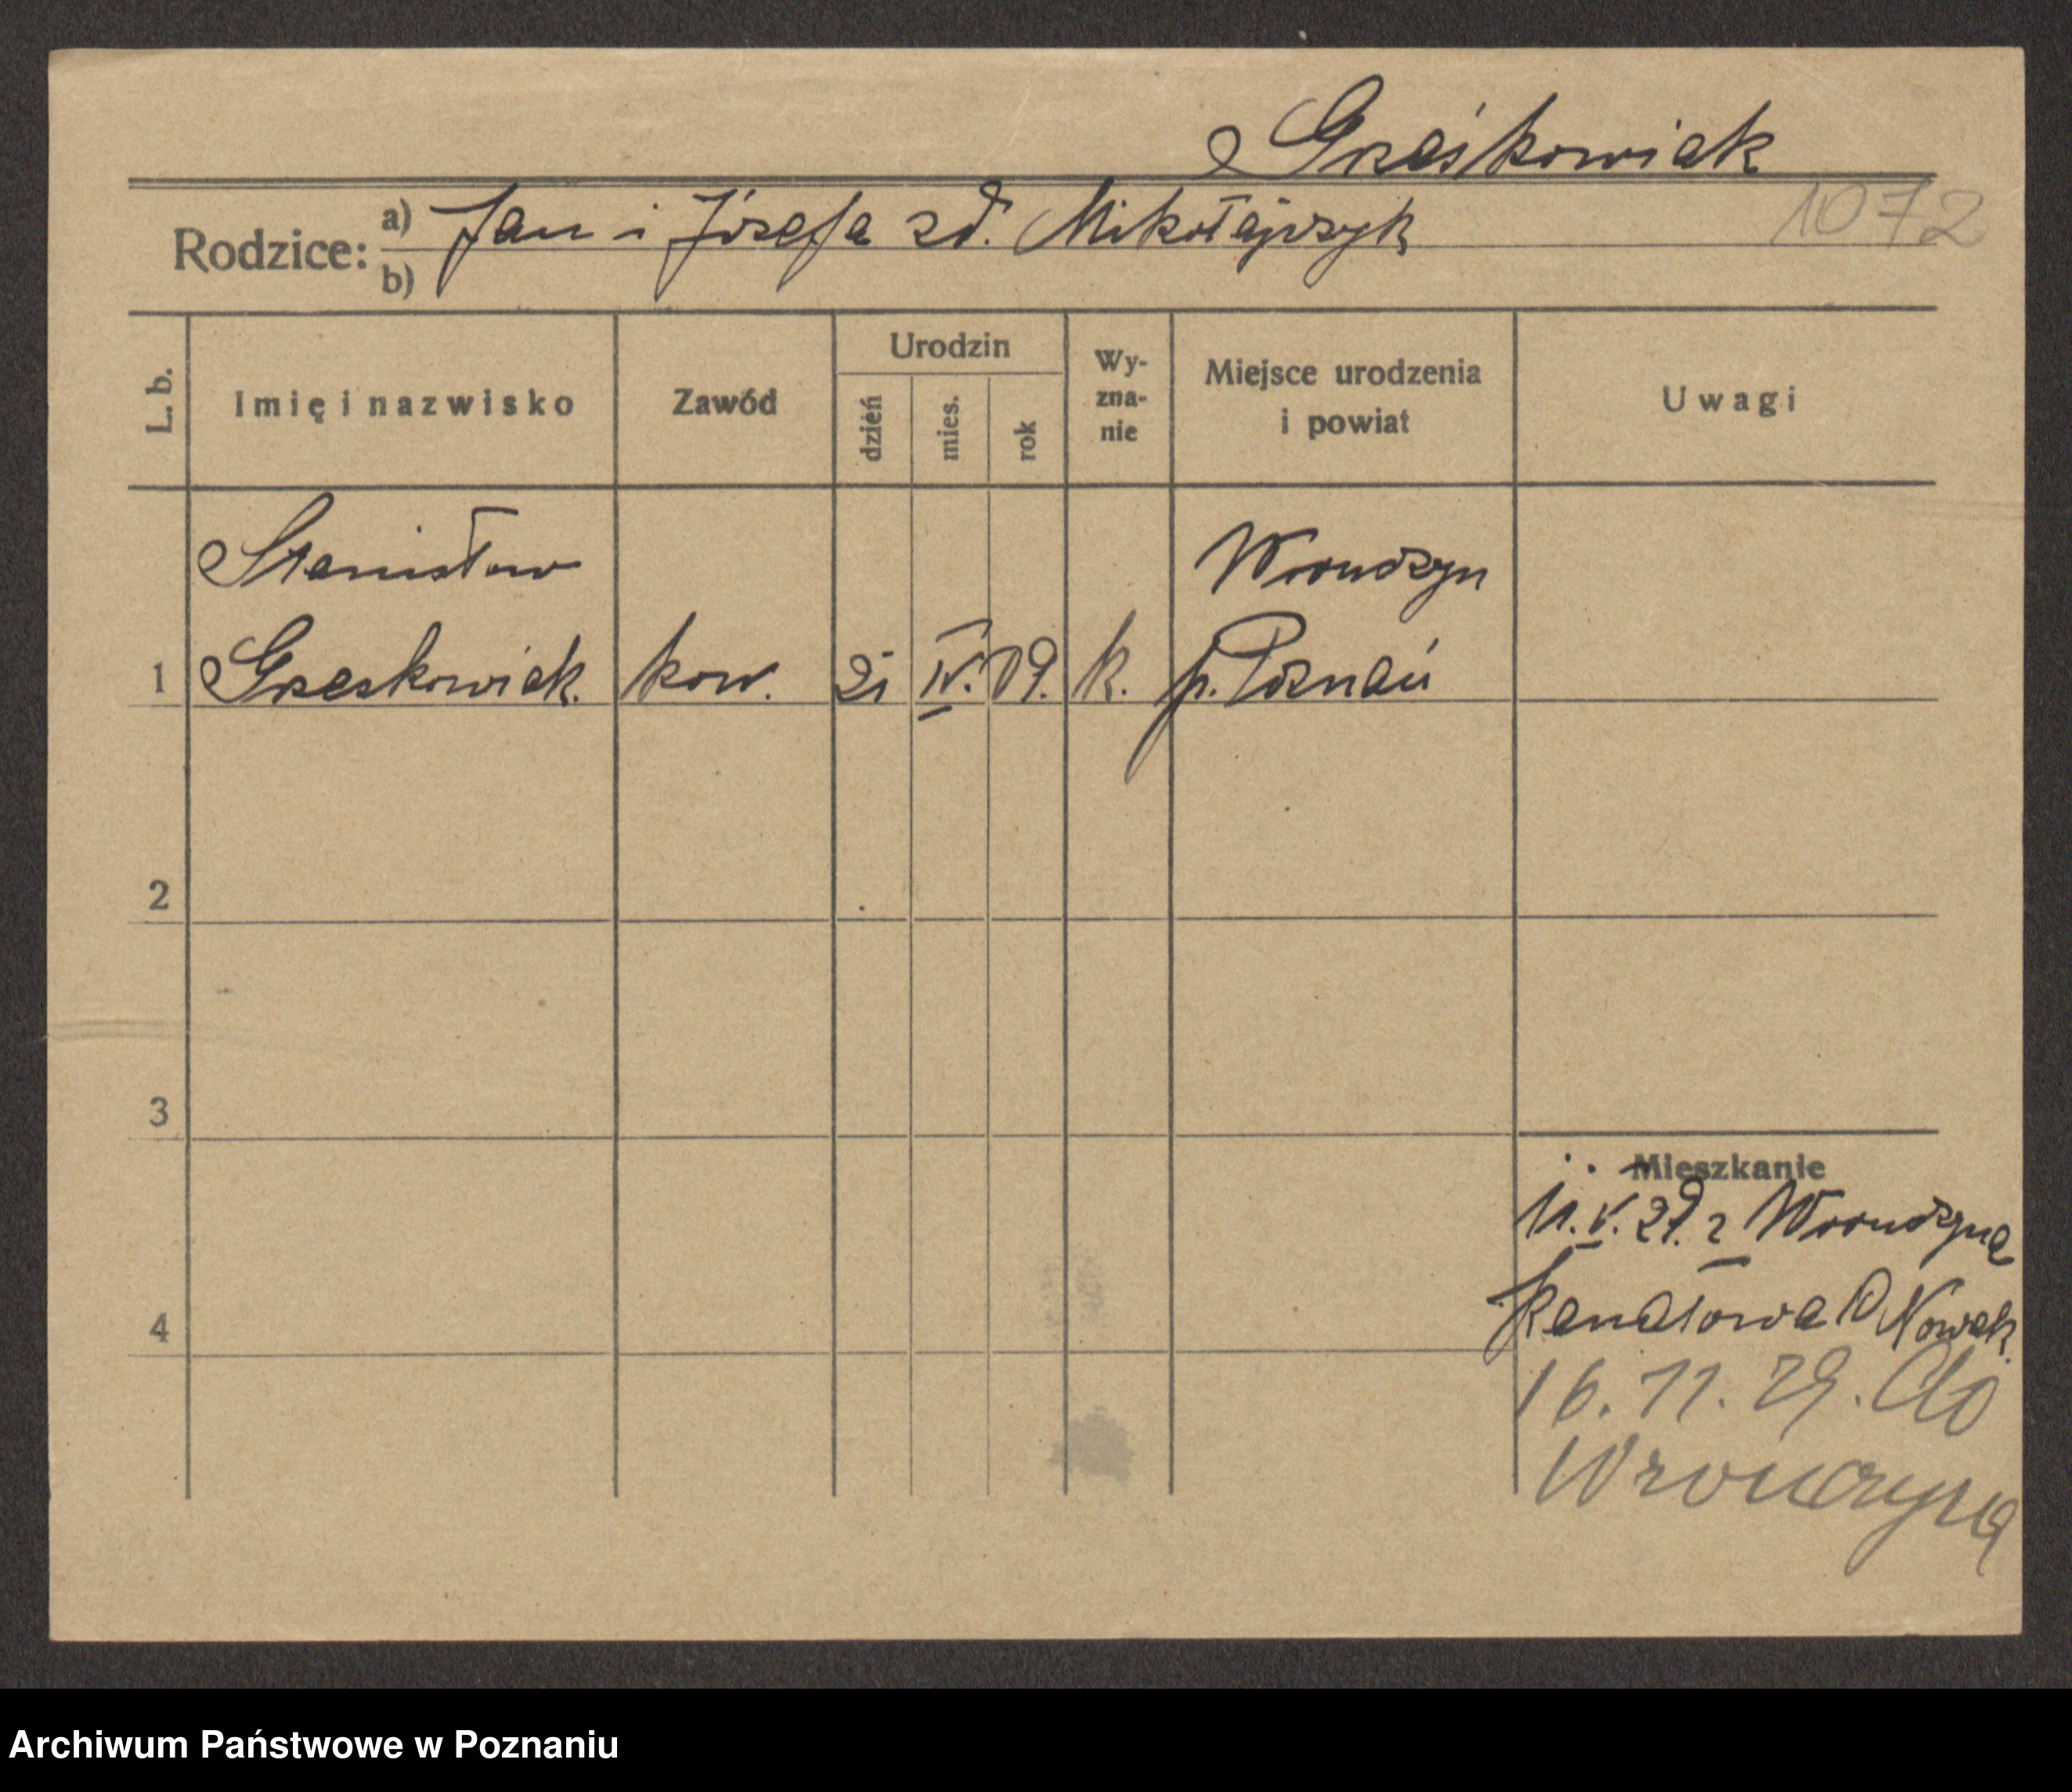 Grześkowiak
1072
Rodzice: a) Jan i Józefa zd. Mikołajczyk
b)
L. b. Imię i nazwisko Zawód Urodzin dzień mies. rok Wy-zna-nie Miejsce urodzenia i powiat Uwagi
Stanisław Wronczyn
1 Grzeskowiak. kow. 21 IV. 09. k. p. Poznań
2
3
Mieszkanie
11. V. 29. z Wronczyna
4 Kanałowa 10 Nowak.
16. 11. 29. do
Wronczyna
Archiwum Państwowe w Poznaniu